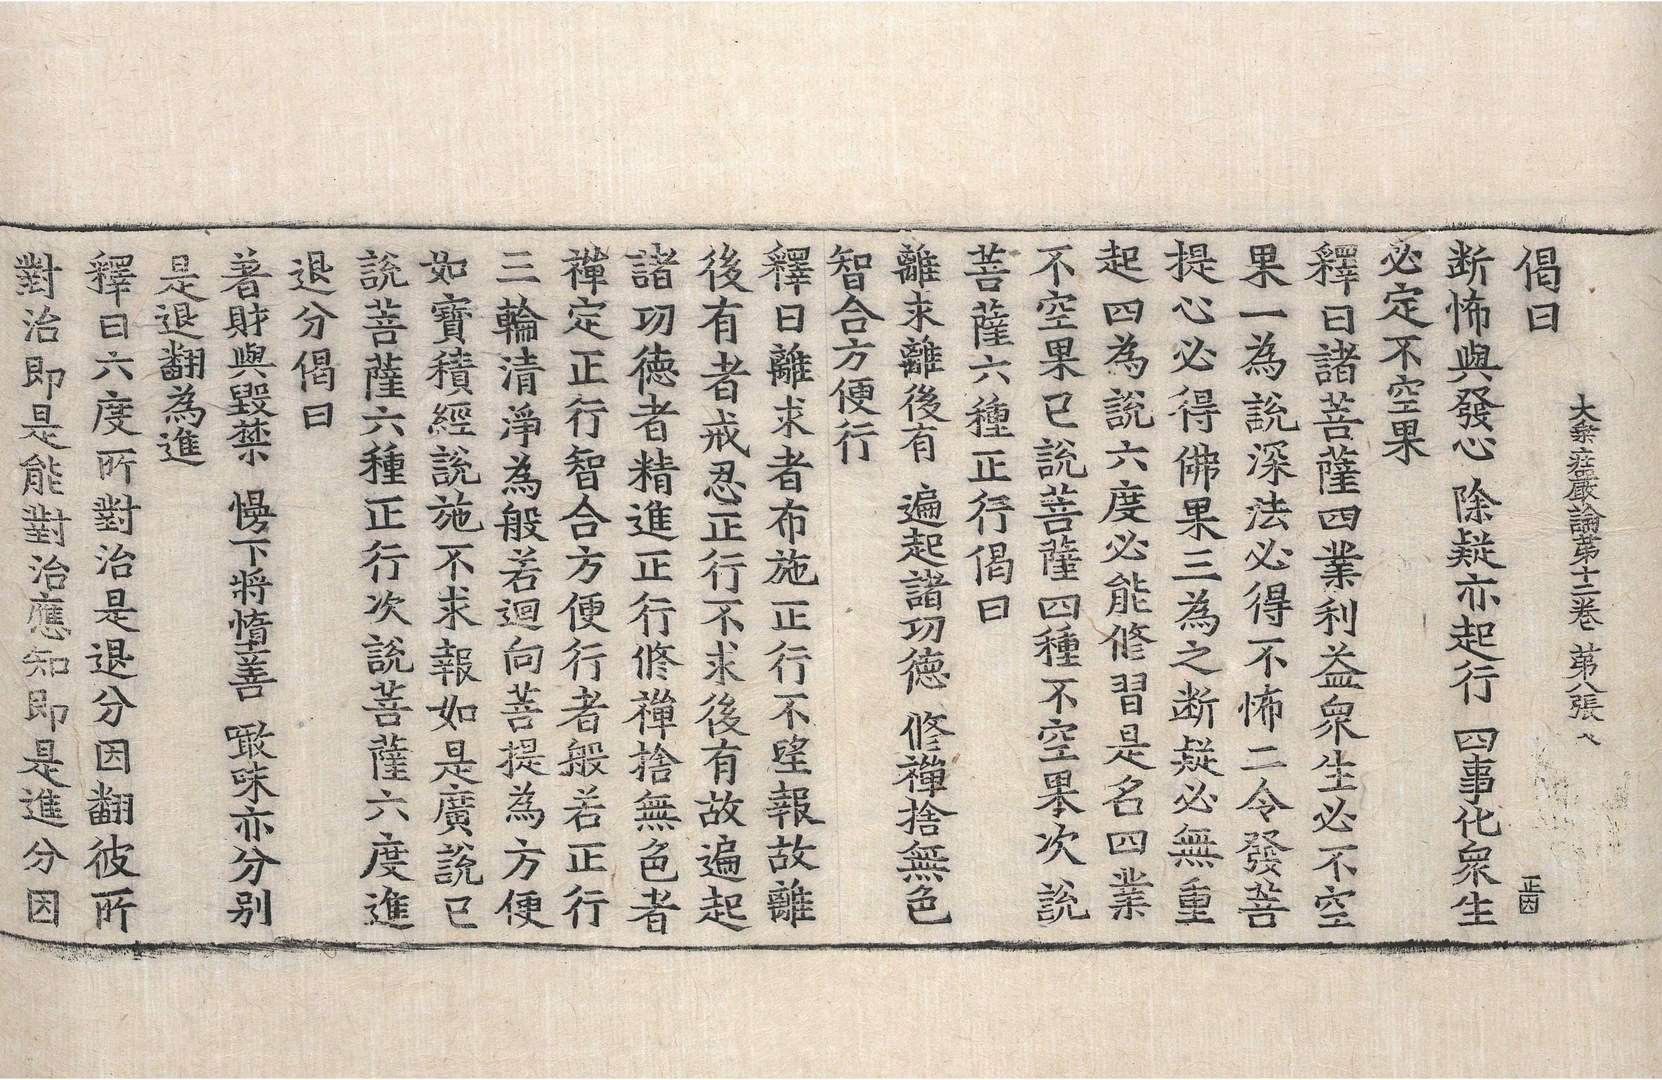 大乘莊嚴論第十二卷 第八張
偈曰 正因
断怖與發心 除疑亦起行 四事化衆生
必定不空果
釋曰諸菩薩四業利益衆生必不空
果一為說深法必得不怖二令發菩
提心必得佛果三為之断疑必無重
起四為說六度必能修習是名四業
不空果已說菩薩四種不空果次說
菩薩六種正行偈曰
離求離後有 遍起諸功德 修禪捨無色
智合方便行
釋曰離求者布施正行不望報故離
後有者戒忍正行不求後有故遍起
諸功德者精進正行修禪捨無色者
禪定正行智合方便行者般若正行
三輪清淨為般若迴向菩提為方便
如寶積經說施不求報如是廣說已
說菩薩六種正行次說菩薩六度進
退分偈曰
著財與毀禁 慢下將墮善 噉味亦分別
是退翻為進
釋曰六度所對治是退分因翻彼所
對治即是能對治應知即是進分因